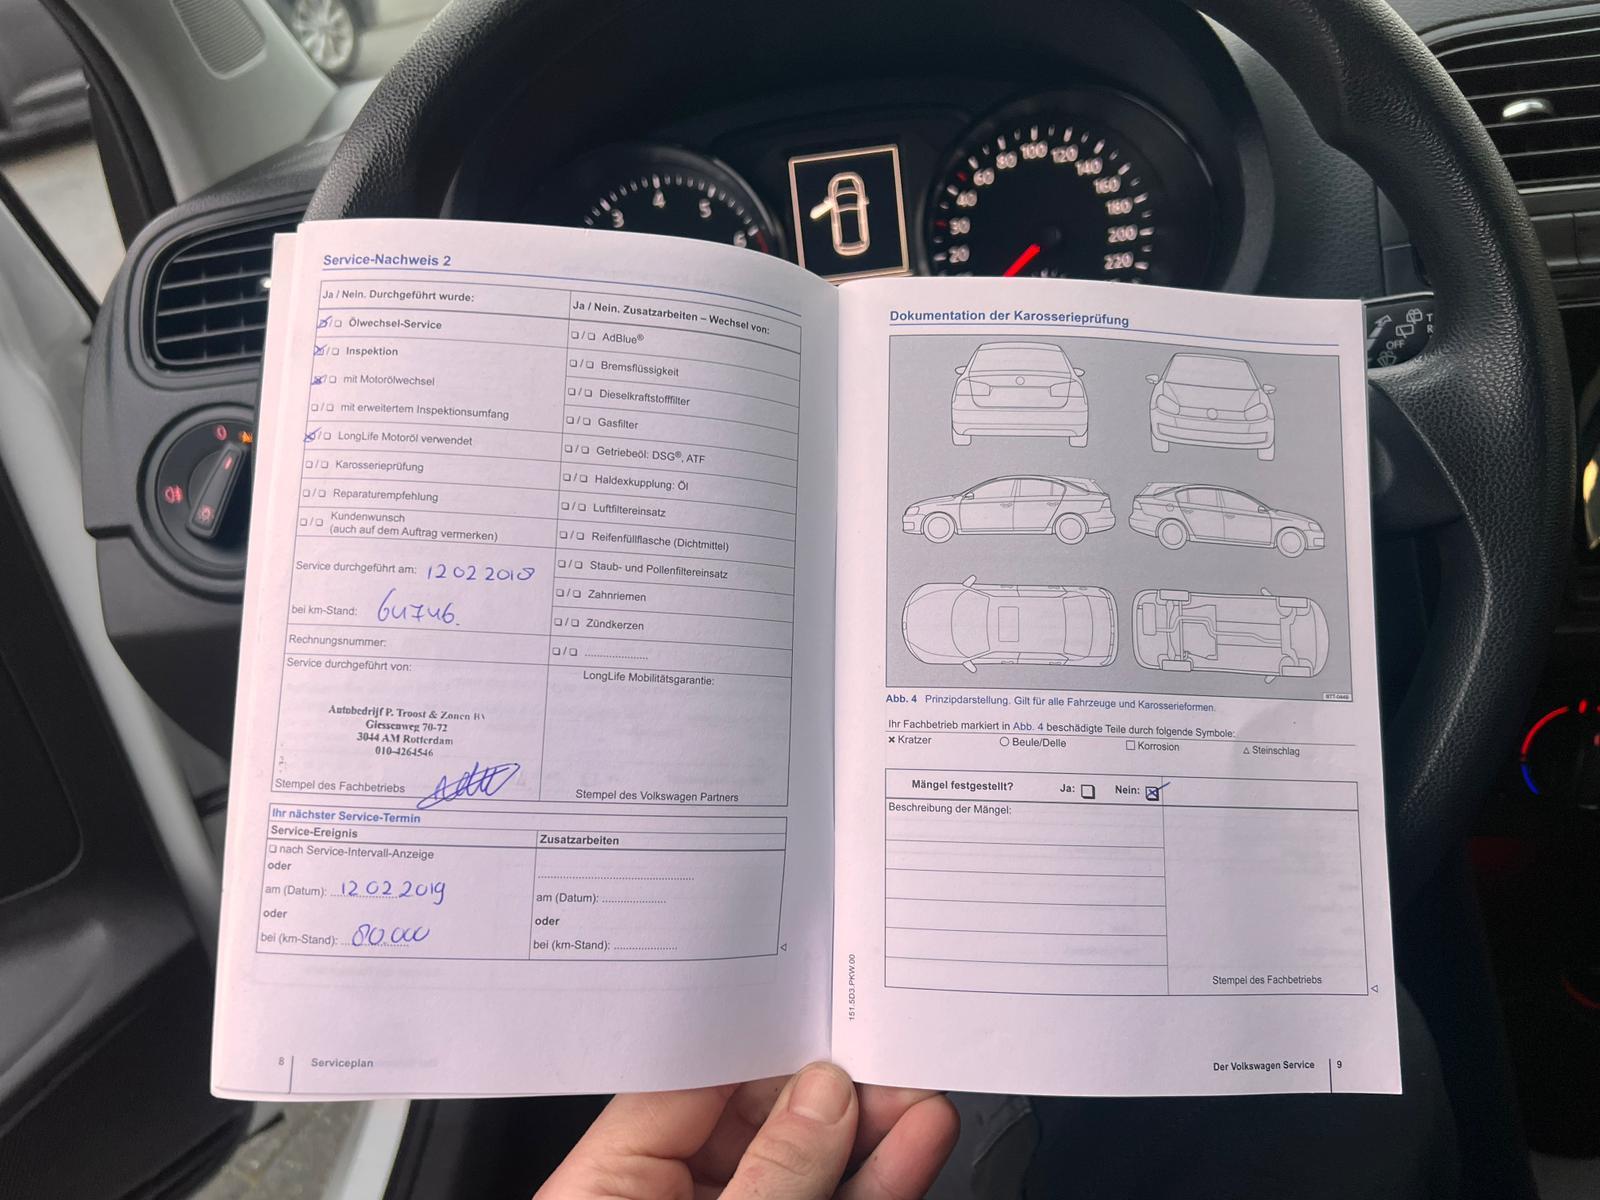 3 4 5 6
20 30 40 60 80 100 120 140 160 180 200 220
OFF
Service-Nachweis 2
Ja / Nein. Durchgeführt wurde:
☒/❑ Ölwechsel-Service
☒/❑ Inspektion
☒/❑ mit Motorölwechsel
❑/❑ mit erweitertem Inspektionsumfang
☒/❑ LongLife Motoröl verwendet
❑/❑ Karosserieprüfung
❑/❑ Reparaturempfehlung
❑/❑ Kundenwunsch
(auch auf dem Auftrag vermerken)
Service durchgeführt am: 12 02 2018
bei km-Stand: 64746.
Rechnungsnummer:
Service durchgeführt von:
Autobedrijf P. Troost & Zonen BV
Giessenweg 70-72
3044 AM Rotterdam
010-4264546
Stempel des Fachbetriebs
Ja / Nein. Zusatzarbeiten – Wechsel von:
❑/❑ AdBlue®
❑/❑ Bremsflüssigkeit
❑/❑ Dieselkraftstofffilter
❑/❑ Gasfilter
❑/❑ Getriebeöl: DSG®, ATF
❑/❑ Haldexkupplung: Öl
❑/❑ Luftfiltereinsatz
❑/❑ Reifenfüllflasche (Dichtmittel)
❑/❑ Staub- und Pollenfiltereinsatz
❑/❑ Zahnriemen
❑/❑ Zündkerzen
❑/❑ .....................
LongLife Mobilitätsgarantie:
Stempel des Volkswagen Partners
Ihr nächster Service-Termin
Service-Ereignis
❑ nach Service-Intervall-Anzeige
oder
am (Datum): 12 02 2019
oder
bei (km-Stand): 80.000
Zusatzarbeiten
am (Datum): .....................
oder
bei (km-Stand): .....................
8 Serviceplan
Dokumentation der Karosserieprüfung
BTT-0449
Abb. 4 Prinzipdarstellung. Gilt für alle Fahrzeuge und Karosserieformen.
Ihr Fachbetrieb markiert in Abb. 4 beschädigte Teile durch folgende Symbole:
× Kratzer ○ Beule/Delle □ Korrosion △ Steinschlag
Mängel festgestellt? Ja: ❑ Nein: ☒
Beschreibung der Mängel:
Stempel des Fachbetriebs
151.5D3.PKW.00
Der Volkswagen Service 9